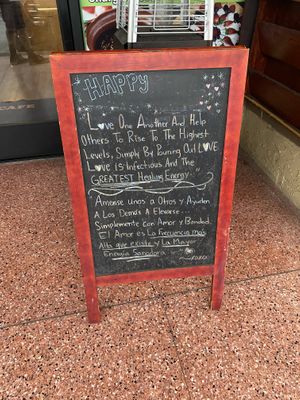 HAPPY
Love One Another And Help
Others To Rise To The Highest
Levels, Simply By Pouring Out LOVE
Love is Infectious And The
GREATEST Healing Energy...
"Amense unos a Otros y Ayuden
A Los Demás A Elevarse...
Simplemente con Amor y Bondad.
El Amor es La Frecuencia más
Alta que existe y La Mayor
Energia Sanadora
CAFE